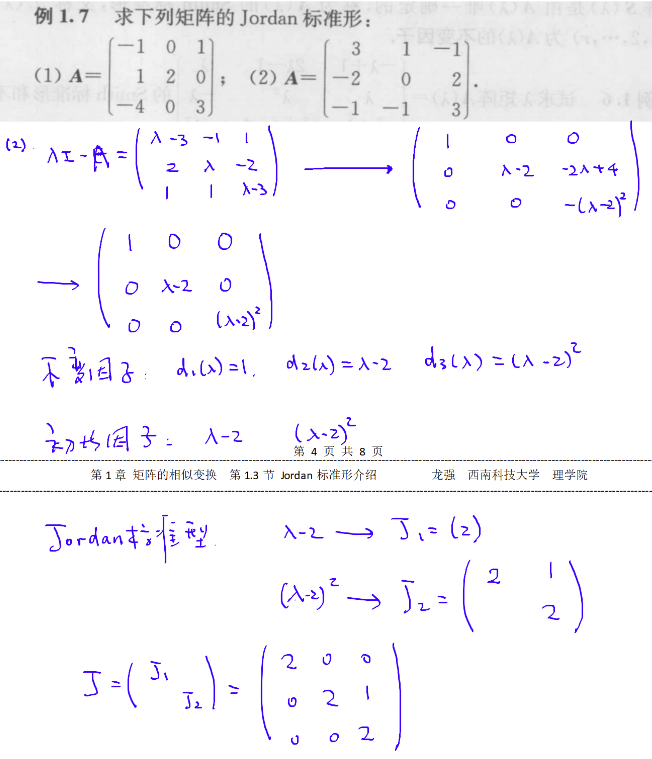 例 1.7 求下列矩阵的 Jordan 标准形：
(1) A= ( -1 0 1 ; 1 2 0 ; -4 0 3 ) ； (2) A= ( 3 1 -1 ; -2 0 2 ; -1 -1 3 ) .
(2) λI-A = ( λ-3 -1 1 ; 2 λ -2 ; 1 1 λ-3 ) → ( 1 0 0 ; 0 λ-2 -2λ+4 ; 0 0 -(λ-2)² )
→ ( 1 0 0 ; 0 λ-2 0 ; 0 0 (λ-2)² )
不变因子: d₁(λ)=1, d₂(λ)=λ-2 d₃(λ)=(λ-2)²
初等因子: λ-2 (λ-2)²
第 4 页 共 8 页
第 1 章 矩阵的相似变换 第 1.3 节 Jordan 标准形介绍 龙强 西南科技大学 理学院
Jordan标准型 λ-2 → J₁=(2)
(λ-2)² → J₂= ( 2 1 ; 2 )
J = ( J₁ ; J₂ ) = ( 2 0 0 ; 0 2 1 ; 0 0 2 )